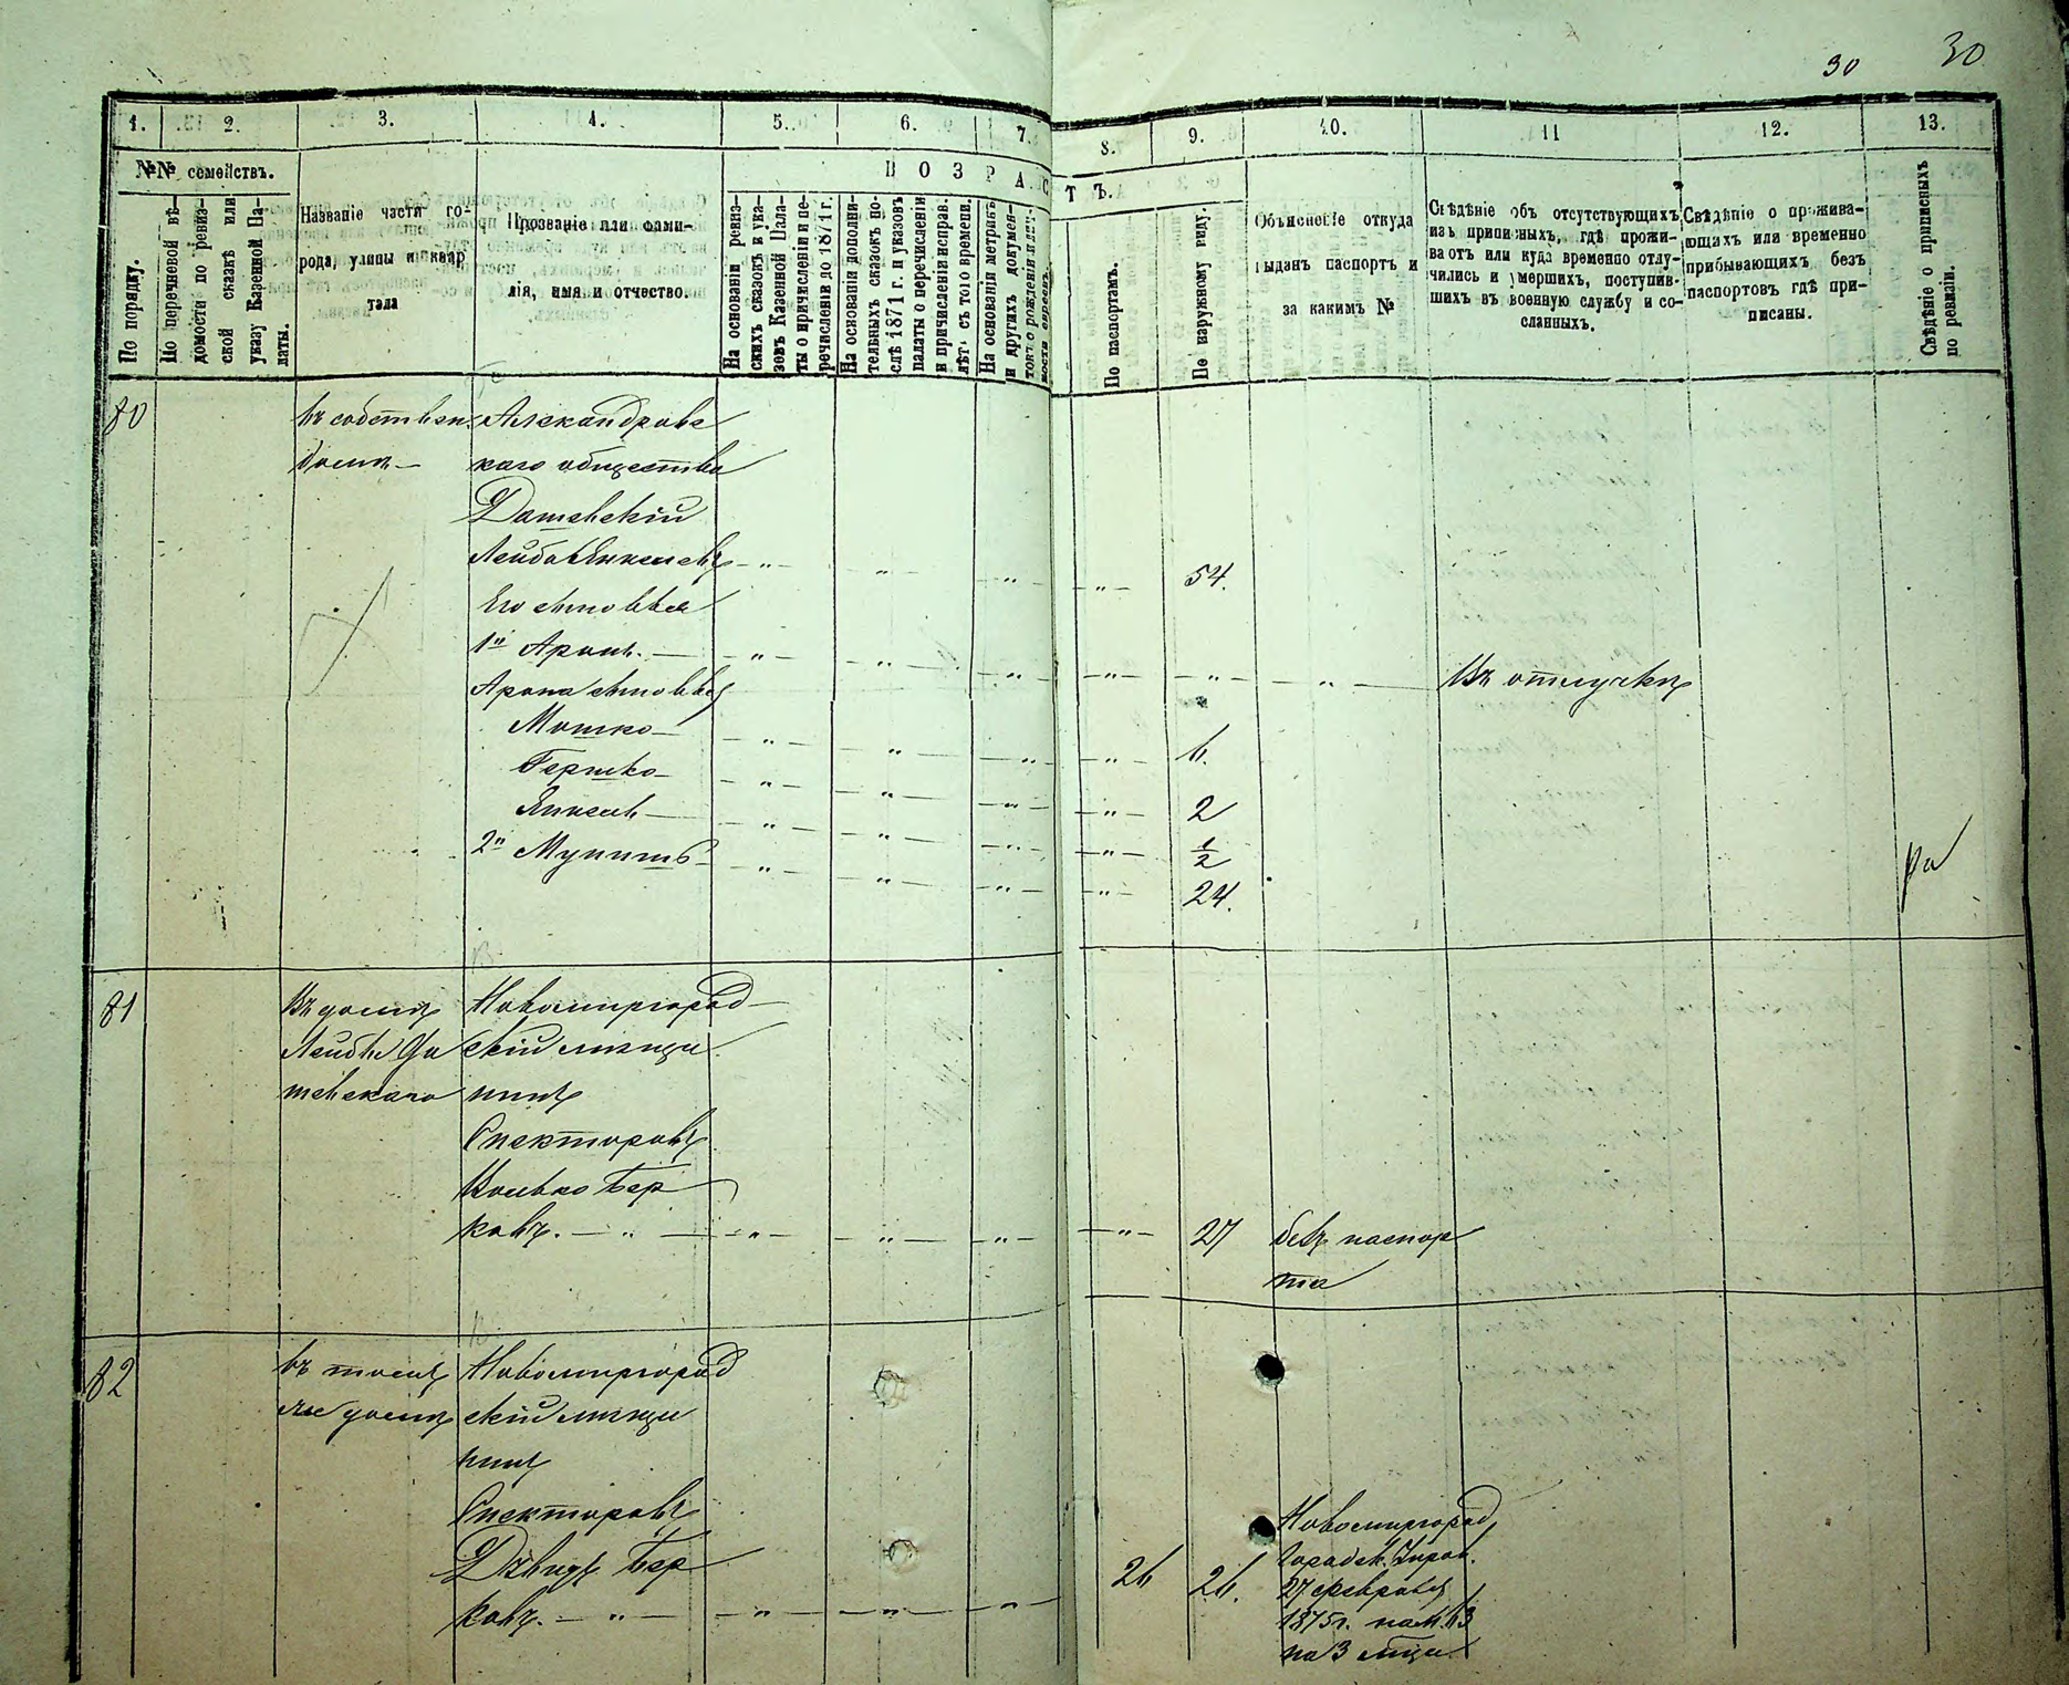 30 30
1. 2. 3. 4. 5. 6. 7. 8. 9. 10. 11 12. 13.
№№ семействъ.
В О З Р А С Т Ъ.
По порядку.
По перечневой вѣ-
домости по ревиз-
ской сказкѣ или
указу Казенной Па-
латы.
Названіе части го-
рода, улицы и квар
тала
Прозваніе или фами-
лія, имя и отчество.
На основаніи ревиз-
скихъ сказокъ и ука-
зовъ Казенной Пала-
ты о причисленіи и пе-
речисленіи до 1871 г.
На основаніи дополни-
тельныхъ сказокъ по-
слѣ 1871 г. и указовъ
палаты о перечисленіи
и причисленіи исправ.
лѣтъ съ того времени.
На основаніи метрикъ
и другихъ докумен-
токъ о рожденіи и
ности евреевъ.
По паспортамъ.
По наружному виду.
Объясненіе откуда
выданъ паспортъ и
за какимъ №
Свѣдѣніе объ отсутствующихъ
изъ приписныхъ, гдѣ прожи-
ваютъ или куда временно отлу-
чились и умершихъ, поступив-
шихъ въ военную службу и со-
сланныхъ.
Свѣдѣніе о прожива-
ющихъ или временно
прибывающихъ безъ
паспортовъ гдѣ при-
писаны.
Свѣдѣніе о приписныхъ
по ревизіи.
80 въ собствен. Александровс
домѣ— каго общества
Дашевскій
Лейба Янкелевъ —"— " —"— —"— 54.
Его сыновья
1й Аронъ. — —"— —"— —"— —"— —"— —"— Въ отлучкѣ
Арона сыновья
Мошко— —"— —"— —"— —"— 6.
Гершко— —"— —"— —"— —"— 2
Янкель— —"— —"— —"— —"— 1/2
2й Мунишъ —"— —"— —"— —"— 24.
81 Въ домѣ Новомиргород—
Лейбы Да скій мѣща
шевскаго нинъ
Спекторовъ
Волько Бер
ковъ. — " — —"— —"— —"— —"— 27 безъ паспор
та
82 въ томъ Новомиргород
же домѣ скій мѣща
нинъ
Спекторовъ
Давидъ Бер
ковъ. — " — —"— —"— —"— 26 26.
Новомиргород
городск. Управ.
27 февраля
1875 г. на № 63
на 3 мѣца